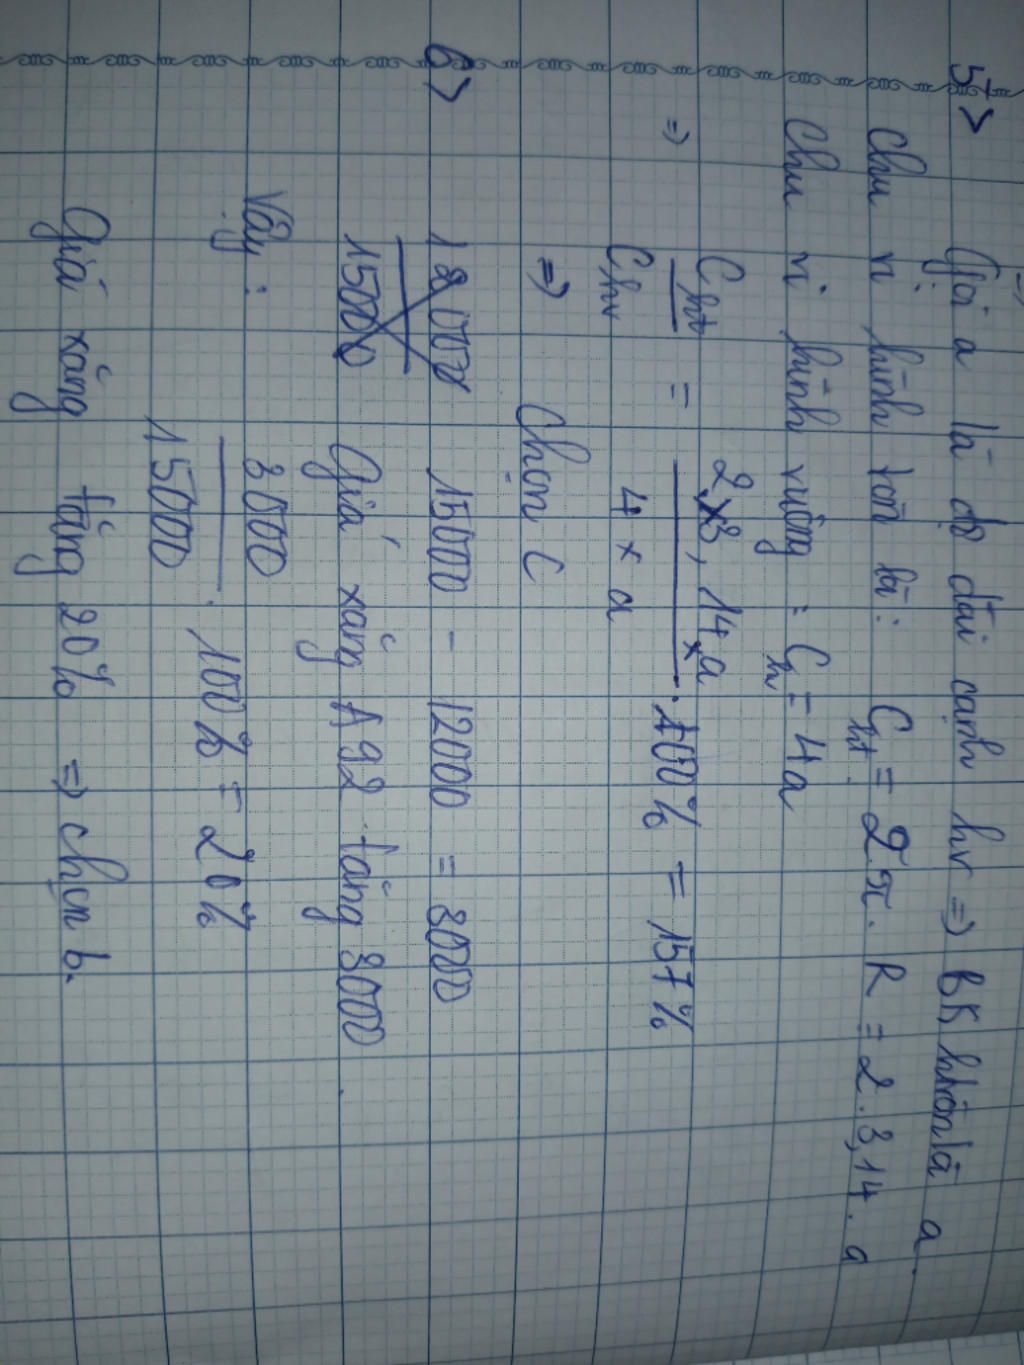 5> Gọi a là độ dài cạnh hv => BK htròn là a.
Chu vi hình tròn là: Cht = 2.π.R = 2.3,14.a
Chu vi hình vuông: Chv = 4a
=> Cht / Chv = 2x3,14xa / 4xa . 100% = 157%
=> Chọn C
6> 15000 - 12000 = 3000
Giá xăng A92 tăng 3000.
Vậy: 3000 / 15000 . 100% = 20%
Giá xăng tăng 20% => chọn b.